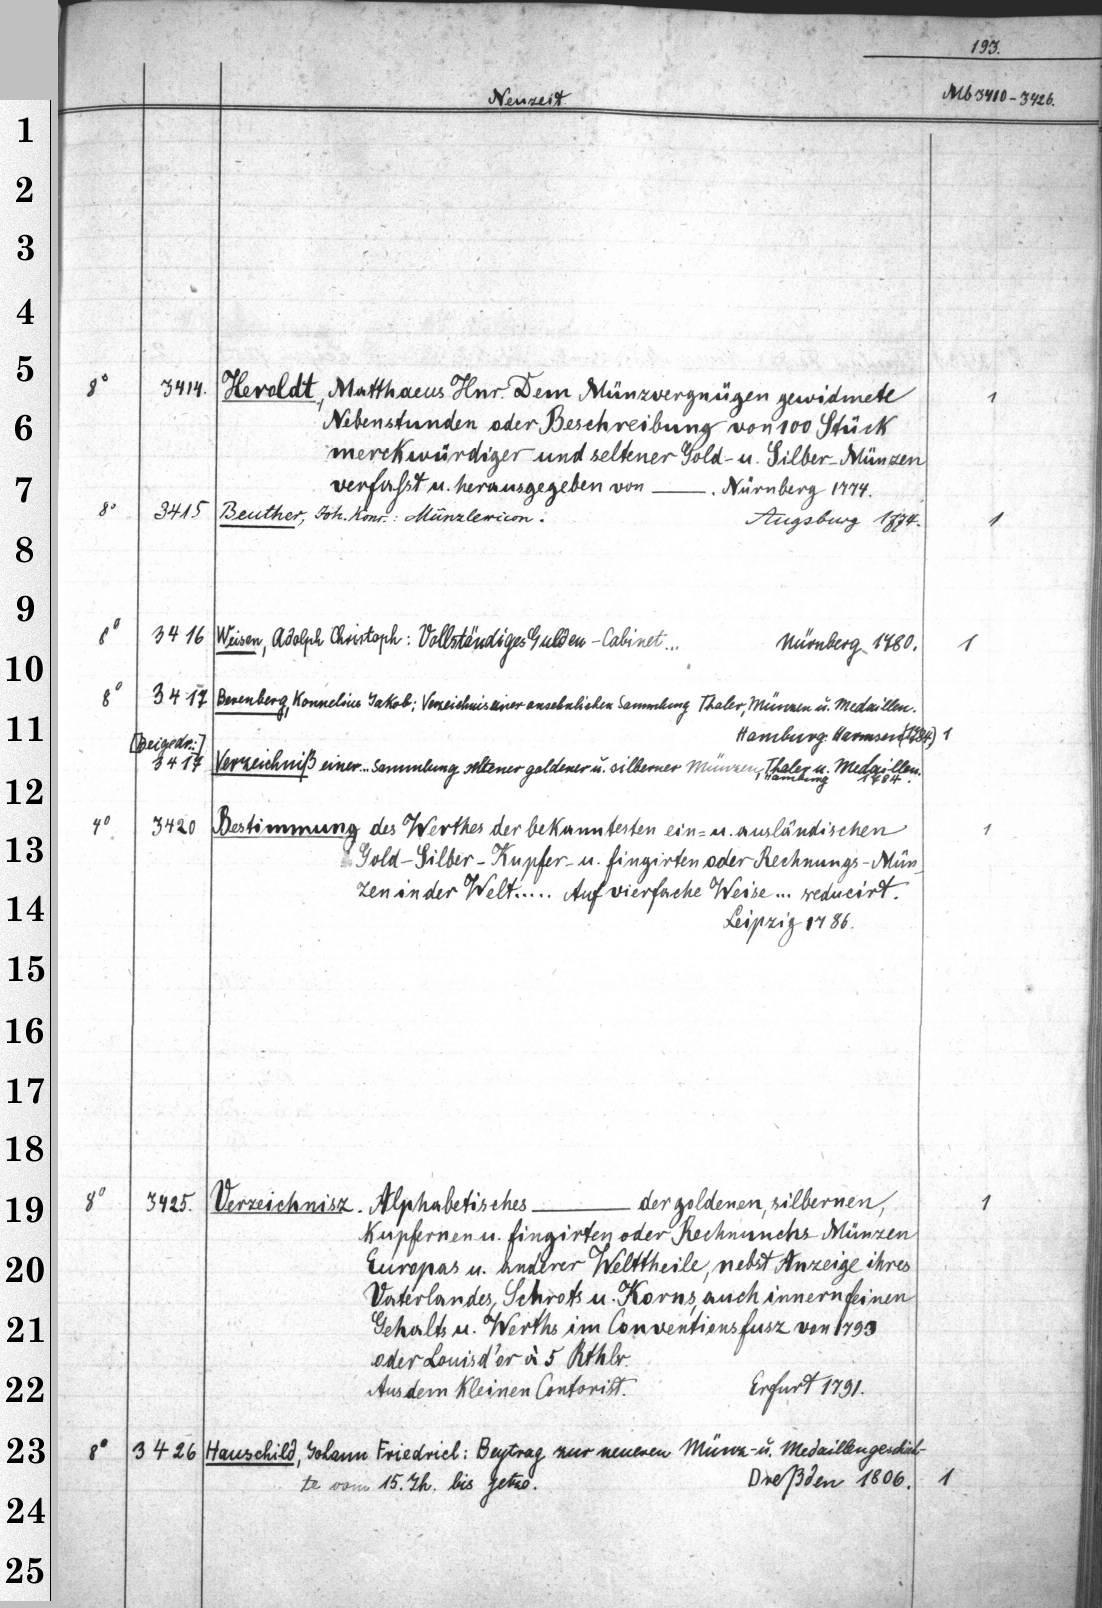 193.
Neuzeit.
Mb 3410-3426.
1
2
3
4
5
6
7
8
9
10
11
12
13
14
15
16
17
18
19
20
21
22
23
24
25
8° 3414. Heroldt, Matthaeus Hnr. Dem Münzvergnügen gewidmete 1
Nebenstunden oder Beschreibung von 100 Stück
merckwürdiger und seltener Gold- u. Silber-Münzen
verfasst u. herausgegeben von ——. Nürnberg 1774.
8° 3415 Beuther, Joh. Konr.: Münzlexicon. Augsburg 1774. 1
8° 3416 Weisen, Adolph Christoph: Vollständiges Gulden-Cabinet... Nürnberg 1780. 1
8° 3417 Berenberg, Kornnelius Jakob: Verzeichnis einer ansehnlichen Sammlung Thaler, Münzen u. Medaillen.
Hamburg: Harmsen (1784) 1
[Beigedr.:]
3417 Verzeichniß einer... Sammlung seltener goldener u. silberner Münzen, Thaler u. Medaillen.
Hamburg 1784.
4° 3420 Bestimmung des Werthes der bekanntesten ein= u. ausländischen 1
Gold-Silber-Kupfer- u. fingirten oder Rechnungs-Mün-
zen in der Welt..... Auf vierfache Weise... reducirt.
Leipzig 1786.
8° 3425. Verzeichnisz. Alphabetisches —— der goldenen, silbernen, 1
Kupfernen u. fingirten oder Rechnunchs-Münzen
Europas u. anderer Welttheile, nebst Anzeige ihres
Vaterlandes, Schrots u. Korns, auch innern feinen
Gehalts u. Werths im Conventionsfusz von 1793
oder Louisd'or à 5 Rthlr.
Aus dem Kleinen Contorist. Erfurt 1791.
8° 3426 Hauschild, Johann Friedrich: Beytrag zur neueren Münz- u. Medaillengeschich-
te vom 15. Jh. bis jetzo. Dreßden 1806. 1